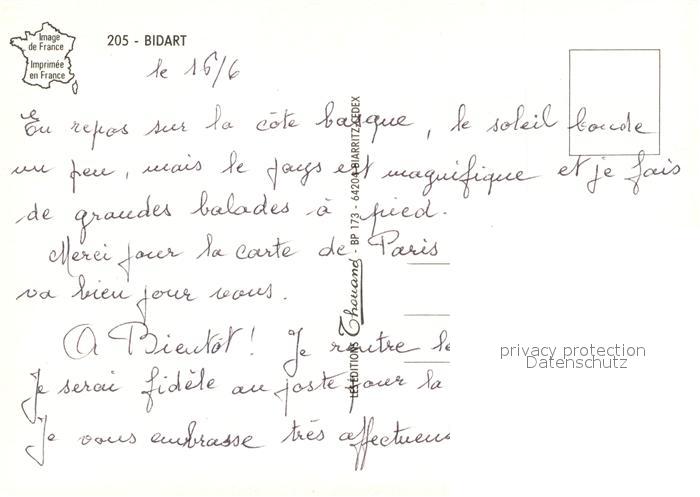 Image
de France
Imprimée
en France
205 - BIDART
le 16/6
En repos sur la côte basque, le soleil boude
un peu, mais le pays est magnifique et je fais
de grandes balades à pied.
Merci pour la carte de Paris
va bien pour vous.
A Bientôt! Je rentre le
Je serai fidèle au poste pour la
Je vous embrasse très affectueus
LES EDITIONS Thouand - BP 173 - 64204 BIARRITZ CEDEX
privacy protection
Datenschutz